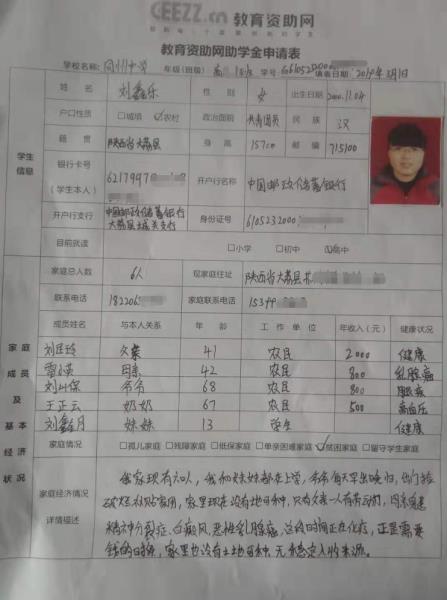 CEEZZ.cn 教育资助网
教育资助网助学金申请表
学校名称: 同州中学 年级(班级) 高 学号 填表日期: 2019年3月1日
学生信息
姓名 刘鑫乐 性别 女 出生日期 2000.11.04
户口性质 □城镇 ☑农村 政治面貌 共青团员 民族 汉
籍贯 陕西省大荔县 身高 157cm 邮编 715100
银行卡号(学生本人) 6217997 开户行名称 中国邮政储蓄银行
开户行支行 中国邮政储蓄银行大荔县城关支行 身份证号 6105232000
目前就读 □小学 □初中 ☑高中
家庭成员及基本经济状况
家庭总人数 6人 现家庭住址 陕西省大荔县
联系电话 182206 家庭联系电话 15399
成员姓名 与本人关系 年龄 工作单位 年收入(元) 健康状况
父亲 41 农民 2000 健康
母亲 42 农民 800 乳腺癌
爷爷 68 农民 800
王正云 奶奶 67 农民 500 高血压
刘鑫月 妹妹 13 学生 健康
家庭情况 □孤儿家庭 □残障家庭 □低保家庭 □单亲困难家庭 ☑贫困家庭 □留守学生家庭
家庭经济情况详情描述
我家现有六口人,我和妹妹都在上学,爷爷每天早出晚归,出门捡
破烂补贴家用,家里现在没有地可种,只有父亲一人有劳动力,母亲患
精神分裂症、白癜风、恶性乳腺癌,这段时间正在化疗,正是需要
钱的时候,家里也没有土地可种,无稳定收入来源。